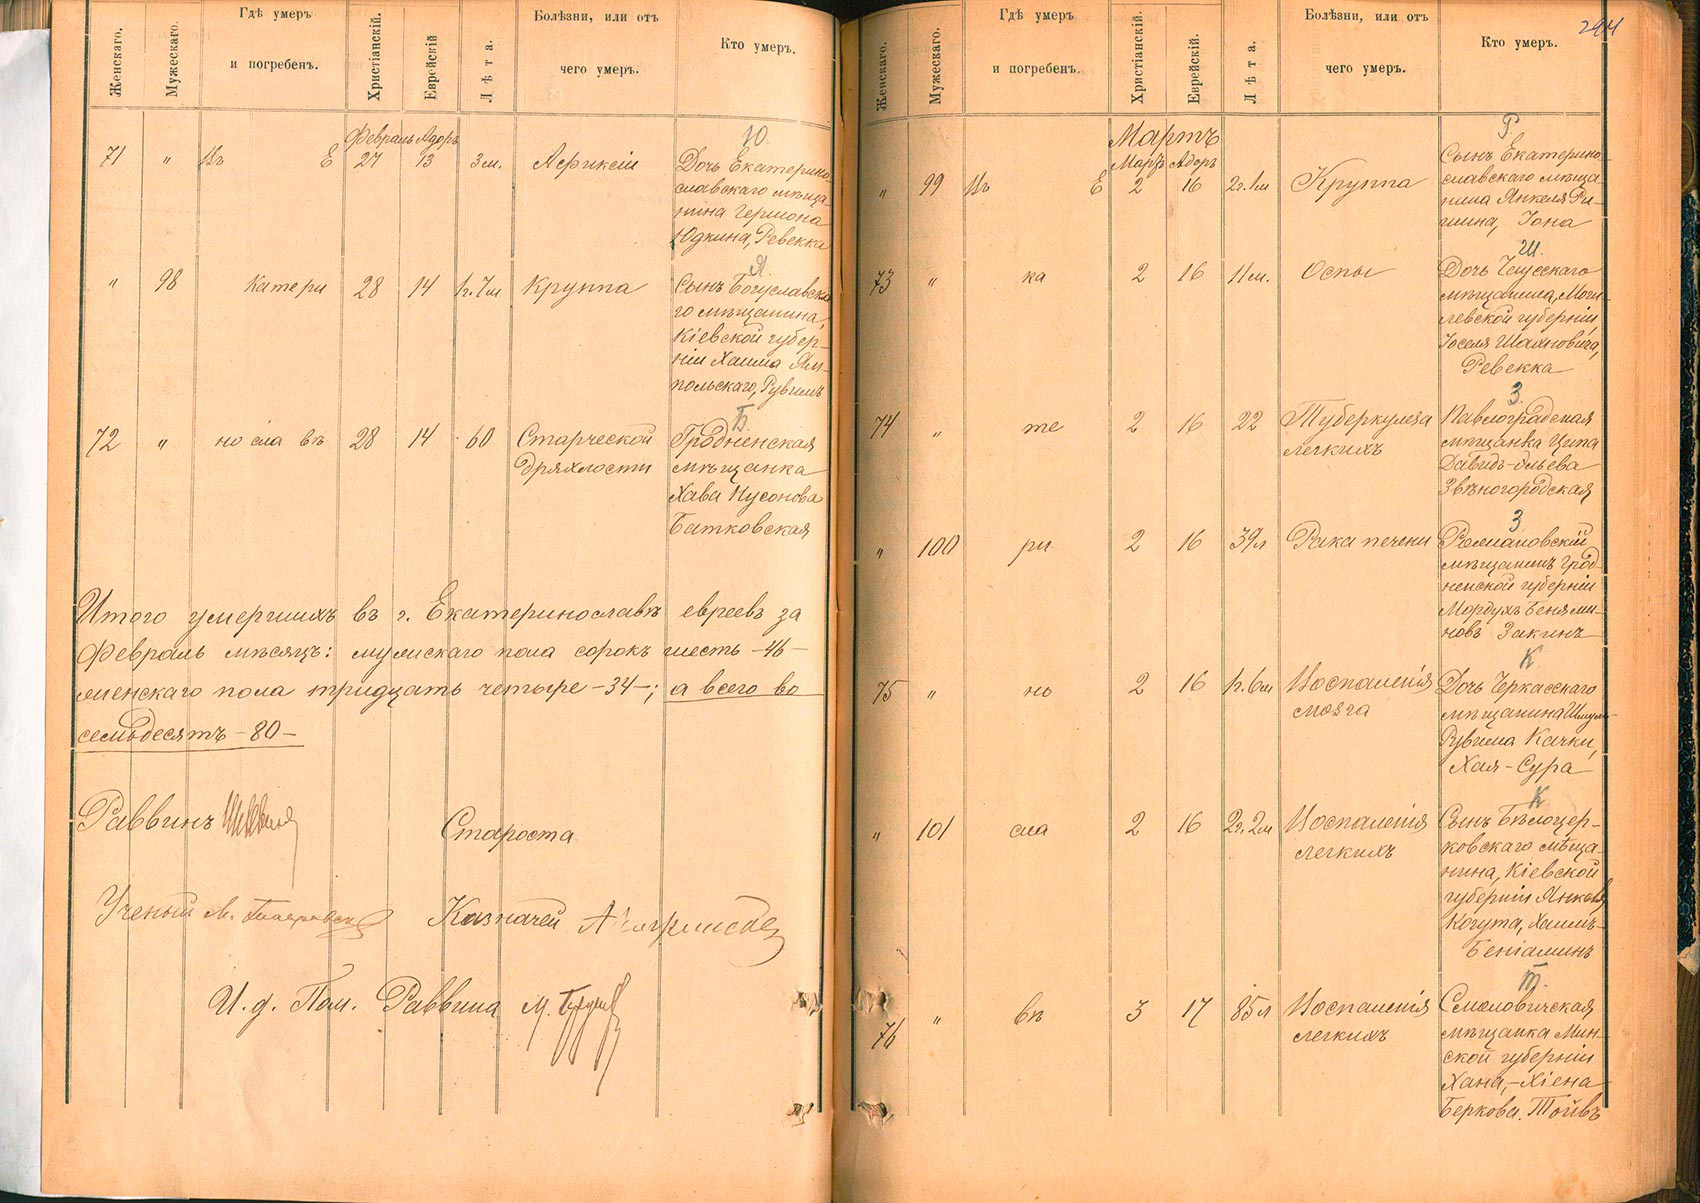 Женскаго.
Мужескаго.
Гдѣ умеръ
и погребенъ.
Христіанскій.
Еврейскій
Лѣта.
Болѣзни, или отъ
чего умеръ.
Кто умеръ.
Февраль Адоръ
Ю.
71 " Въ Е 27 13 3 м. Асфиксіи
Дочь Екатерино-
славскаго мѣща-
нина Гершона
Юдкина, Ревекка
Я.
" 98 катери 28 14 1 г. 7 м Круппа
Сынъ Богуславска
го мѣщанина,
Кіевской губер-
ніи Хаима Ям-
польскаго, Рувимъ
Б.
72 " но сла вѣ 28 14 60 Старческой
дряхлости
Гродненская
мѣщанка
Хава Нусонова
Батковская
Итого умершихъ въ г. Екатеринославѣ евреевъ за
Февраль мѣсяцъ: мужскаго пола сорокъ шесть -46-
женскаго пола тридцать четыре -34-; а всего во
семьдесятъ -80-
Раввинъ
Староста
Ученый
Казначей
И. д. Пом. Раввина
294
Женскаго.
Мужескаго.
Гдѣ умеръ
и погребенъ.
Христіанскій.
Еврейскій.
Лѣта.
Болѣзни, или отъ
чего умеръ.
Кто умеръ.
Мартъ
Мартъ Адоръ
Р
" 99 Въ Е 2 16 2 г. 1 м Круппа
Сынъ Екатерино-
славскаго мѣща-
нина Янкеля Ри-
шина, Іона
Ш.
73 " ка 2 16 11 м. Оспы
Дочь Чаусскаго
мѣщанина, Моги-
левской губерніи,
Іоселя Шахновича,
Ревекка
З.
74 " те 2 16 22 Туберкулеза
легкихъ
Павлоградская
мѣщанка Ципа
Давидъ-Ильева
Звѣногородская
З
" 100 ри 2 16 39 л Рака печени
Романовскій
мѣщанинъ Грод-
ненской губерніи
Мордухъ Беньями-
новъ Закинъ
К
75 " но 2 16 1 г. 6 м Воспаленія
мозга
Дочь Черкасскаго
мѣщанина Шмуля-
Рувима Качки,
Хая-Сура
К
" 101 сла 2 16 2 г. 2 м Воспаленія
легкихъ
Сынъ Бѣлоцер-
ковскаго мѣща-
нина, Кіевской
губерніи Янкеля
Когута, Хаимъ-
Беніаминъ
Т.
76 " вѣ 3 17 85 л Воспаленія
легкихъ
Смоловичская
мѣщанка Мин-
ской губерніи
Хана,-Хіена
Беркова Тойвъ